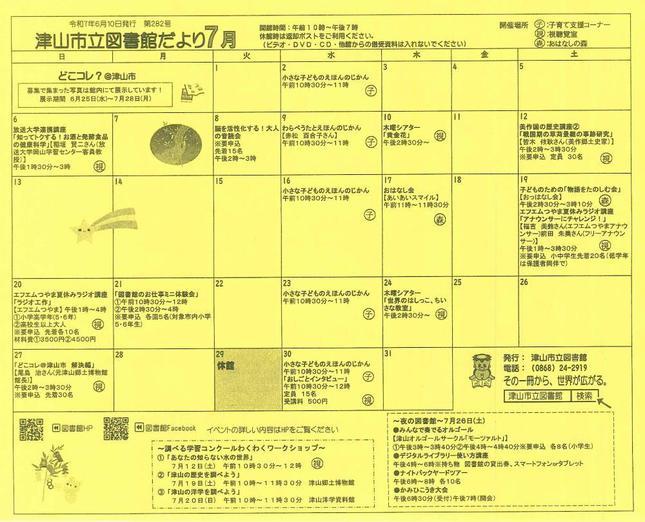 令和7年6月10日発行　第282号
津山市立図書館だより7月
開館時間：午前10時～午後7時
休館時は返却ポストをご利用ください。
（ビデオ・DVD・CD・他館からの借受資料は入れないでください）
開催場所　子：子育て支援コーナー
視：視聴覚室
森：おはなしの森
日　月　火　水　木　金　土
どこコレ？＠津山市
募集で集まった写真は館内にて展示しています！
展示期間　6月25日(水)～7月28日(月)
1
2
小さな子どものえほんのじかん
午前10時30分～11時
子
3
4
5
6
放送大学連携講座
「知ってトクする！お酒と発酵食品の健康科学」【稲垣　賢二さん(放送大学岡山学習センター客員教授)】
午後1時30分～3時
視
7
8
脳を活性化する！大人の音読会
※要申込
先着15名
午後2時～3時
9
わらべうたとえほんのじかん
【赤松　百合子さん】
午前10時30分～11時
子
10
木曜シアター
「黄金花」
午後2時～
視
11
12
美作国の歴史講座②
「戦国期の草苅景継の事跡研究」
午後2時～3時30分
※要申込　定員　30名
視
13
14
15
16
小さな子どものえほんのじかん
午前10時30分～11時
子
17
おはなし会
【あいあいスマイル】
午前11時～11時30分
森
18
19
子どものための「物語をたのしむ会」
【おっはなし会】
午後2時30分～3時10分
森
エフエムつやま夏休みラジオ講座
「アナウンサーにチャレンジ！」
午後1時～3時30分
視
※要申込　小中学生先着20名(低学年は保護者同伴で)
20
エフエムつやま夏休みラジオ講座
「ラジオ工作」
【エフエムつやま】
午後1時～4時
①小学高学年(5・6年)
②高校生以上大人
視
※要申込　先着各10名
材料費①3500円②4500円
21
「図書館のお仕事ミニ体験会」
①午前10時30分～12時
②午後2時30分～4時
※要申込　各回5名(対象市内小学5・6年生)
視
22
23
小さな子どものえほんのじかん
午前10時30分～11時
子
24
木曜シアター
「世界のはしっこ、ちいさな教室」
午後2時～
視
25
26
27
「どこコレ＠津山市　解決編」
【尾島　治さん(元津山郷土博物館館長)】
午後2時～3時30分
視
※要申込　先着30名
28
29
休館
30
小さな子どものえほんのじかん
午前10時30分～11時
子
「おしごとインタビュー」
午前10時～12時
定員　15名
受講料　500円
視
31
発行：　津山市立図書館
電話：　(0868) 24-2919
その一冊から、世界が広がる。
津山市立図書館　検索
図書館HP
図書館Facebook
イベントの詳しい内容はHPをご覧ください
～調べる学習コンクールわくわくワークショップ～
①「あなたの知らない水の世界」
7月12日(土)　午前10時30分～12時　視
②「津山の歴史を調べよう」
7月19日(土)　午前10時～11時30分　津山郷土博物館
③「津山の洋学を調べよう」
7月20日(日)　午前10時～11時30分　津山洋学資料館
～夜の図書館～7月26日(土)
●みんなで奏でるオルゴール
【津山オルゴールサークル「モーツァルト」】
①午後3時～3時40分②午後4時～4時40分※要申込　各8名(小学生)
●デジタルライブラリー使い方講座
午後4時～6時※持ち物　図書館の貸出券、スマートフォンorタブレット
●ナイトバックヤードツアー
午後6時～8時　各10名
●かみひこうき大会
午後6時30分(受付)午後7時(開会)